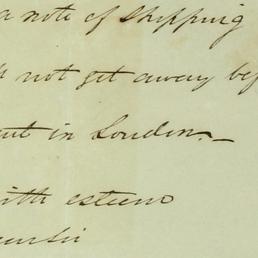 a note of shipping
not get away bef
in London. —
with esteem